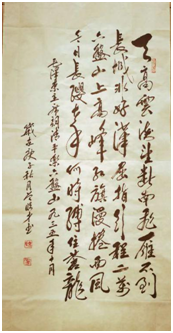 天高雲淡望斷南飛雁不到
長城非好漢屈指行程二萬
六盤山上高峰紅旗漫捲西風
今日長纓在手何時縛住蒼龍
毛澤東主席詞清平樂六盤山一九三五年十月
歲在庚子秋月書